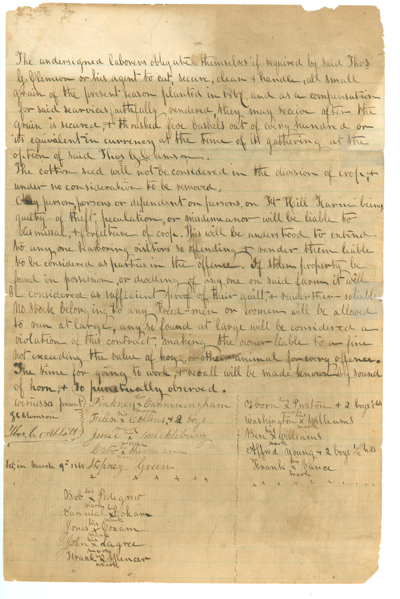 The undersigned laborers obligate themselves if required by said Thos
G. Clemson or his agent to cut, secure, clean & handle, all small
grain of the present season planted in 1867, and as a compensation
for said searvices, faithfully rendered, they may receive after the
grain is secured, & thrashed five bushels out of every hundred or
its equivalent in currency at the time of its gathering at the
option of said Thos G. Clemson.
The cotton seed will not be considered in the division of crop, &
under no consideration to be removed.
Any person, persons or dependent on persons, on Ft Hill Farm being
guilty of theft, peculation, or misdemeanor will be liable to
dismissal, & forfeiture of crop. This will be understood to extend
to any one harboring visitors so offending & render them liable
to be considered as parties in the offence. If stolen property be
found in possession, or dwelling of any one on said farm it will
be considered as sufficient proof of their guilt & render them
No stock belonging to any Freed-men or women will be allowed
to run at large, any so found at large will be considered a
violation of this contract, making the owner liable to a fine
not exceeding the value of hog, or other animal for every offence.
The time for going to work & recall will be made known by sound
of horn, & so punctually observed.
witness present Pinkney x Cunningham
his
mark
& 2 boys
Thos. C.
x
Caro x Thomson
March 9th Stepney Green
Thorn x Preston + 2 boys
Washington x Williams
Ben x Williams
Alfred Young + 2 boys
Frank x Vance
Bob x
his
mark
Jonas x
John x
Frank x Spencer
mark